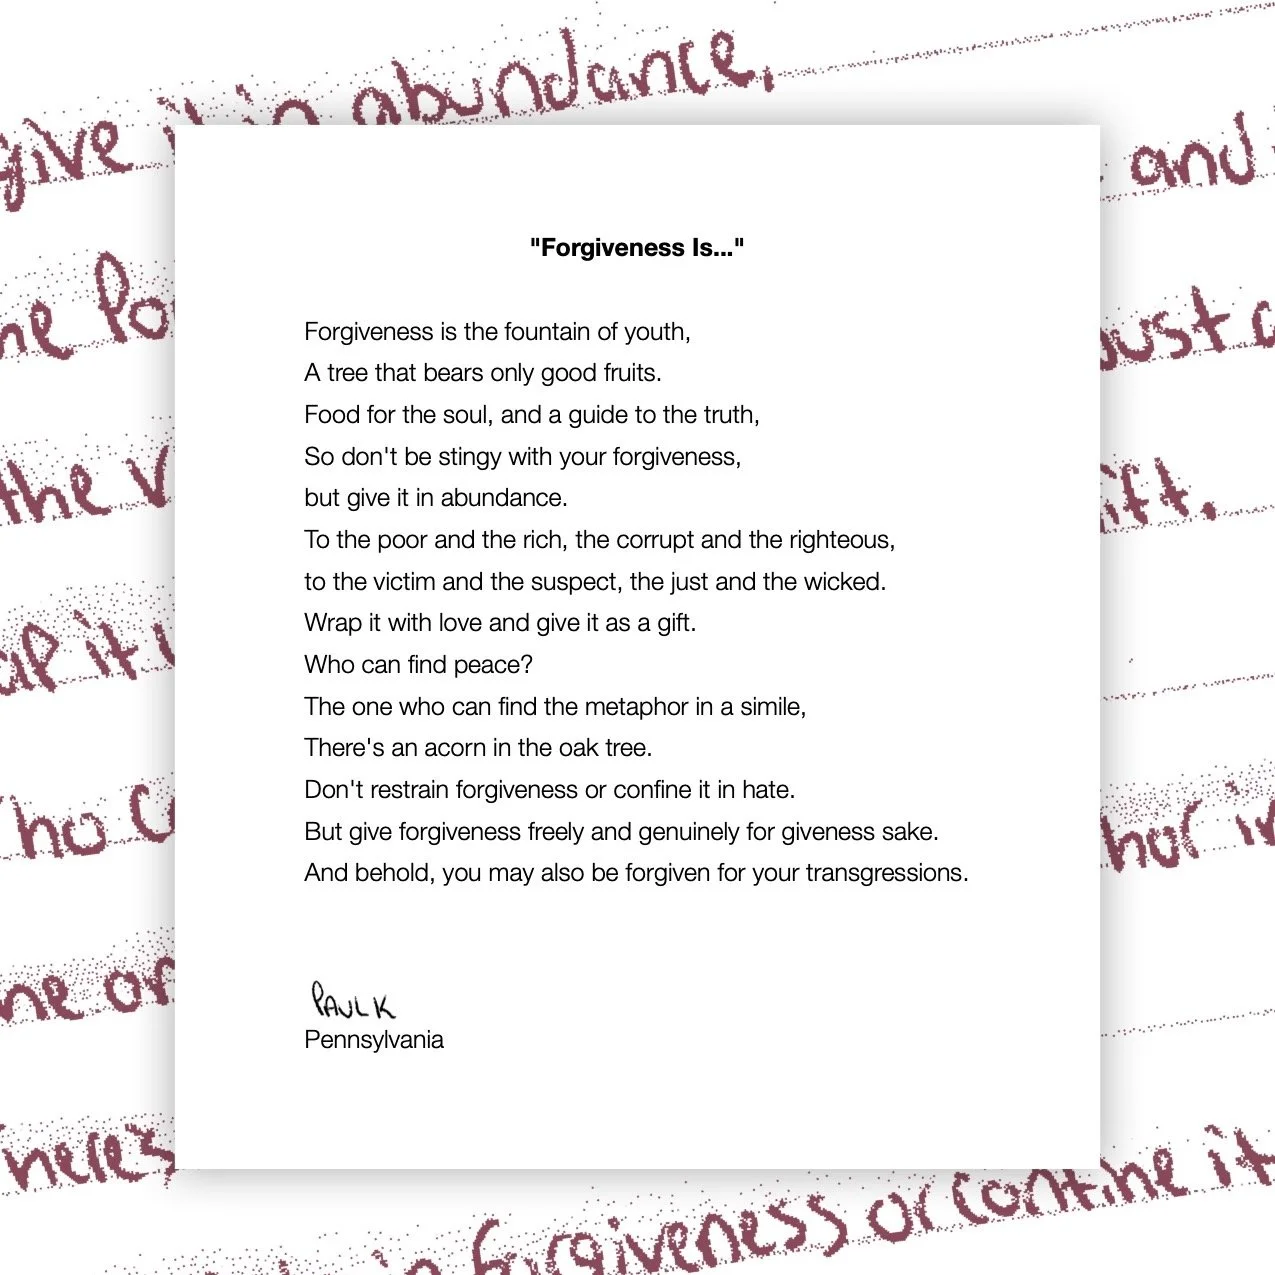 give it in abundance,
and
"Forgiveness Is..."
Forgiveness is the fountain of youth,
A tree that bears only good fruits.
Food for the soul, and a guide to the truth,
So don't be stingy with your forgiveness,
but give it in abundance.
To the poor and the rich, the corrupt and the righteous,
to the victim and the suspect, the just and the wicked.
Wrap it with love and give it as a gift.
Who can find peace?
The one who can find the metaphor in a simile,
There's an acorn in the oak tree.
Don't restrain forgiveness or confine it in hate.
But give forgiveness freely and genuinely for giveness sake.
And behold, you may also be forgiven for your transgressions.
PAUL K
Pennsylvania
the
forgiveness or confine it